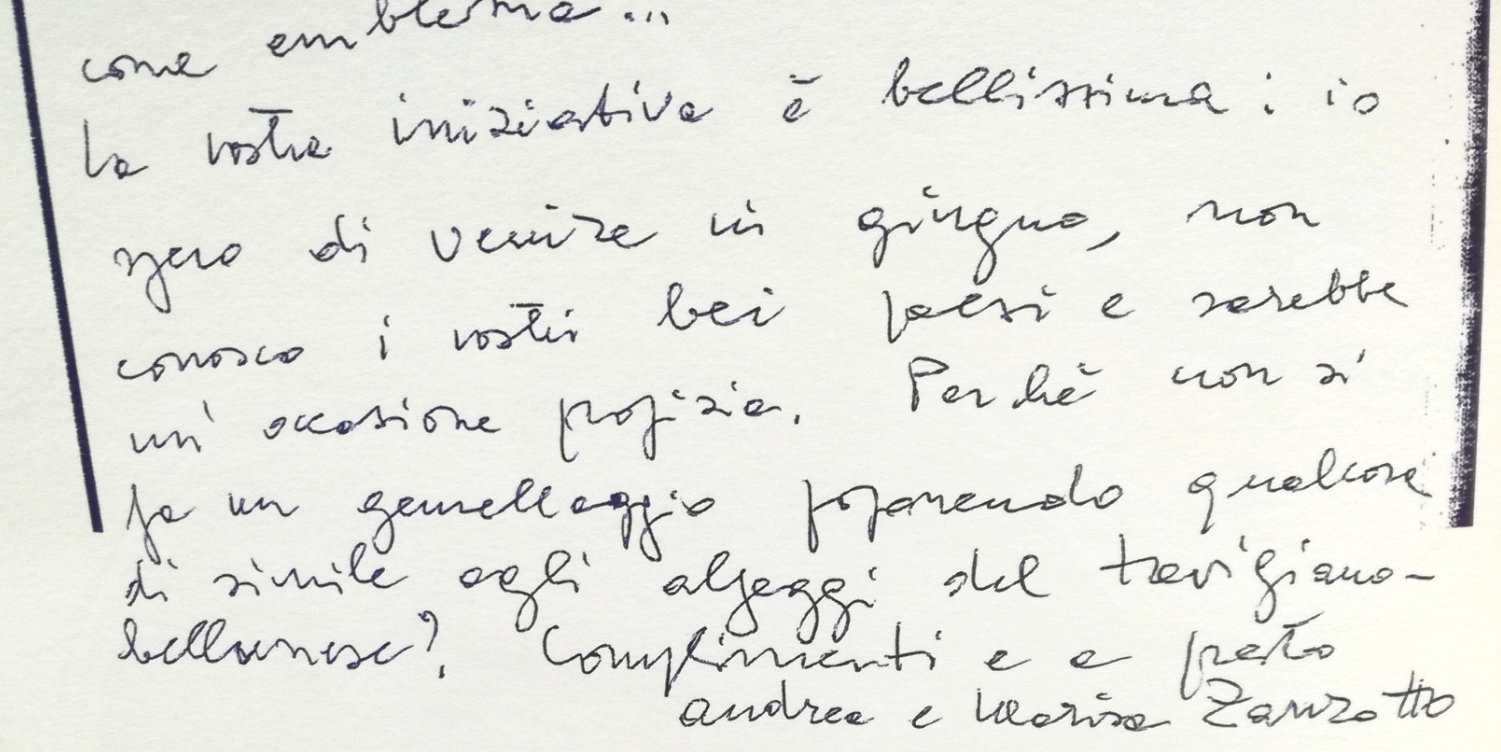 come emblema...
la vostra iniziativa è bellissima: io
spero di venire in giugno, non
conosco i vostri bei paesi e sarebbe
un' occasione propizia. Perché non si
fa un gemellaggio proponendo qualcosa
di simile agli alpeggi del trevigiano-
bellunese? Complimenti e a presto
andrea e Marisa Zanzotto